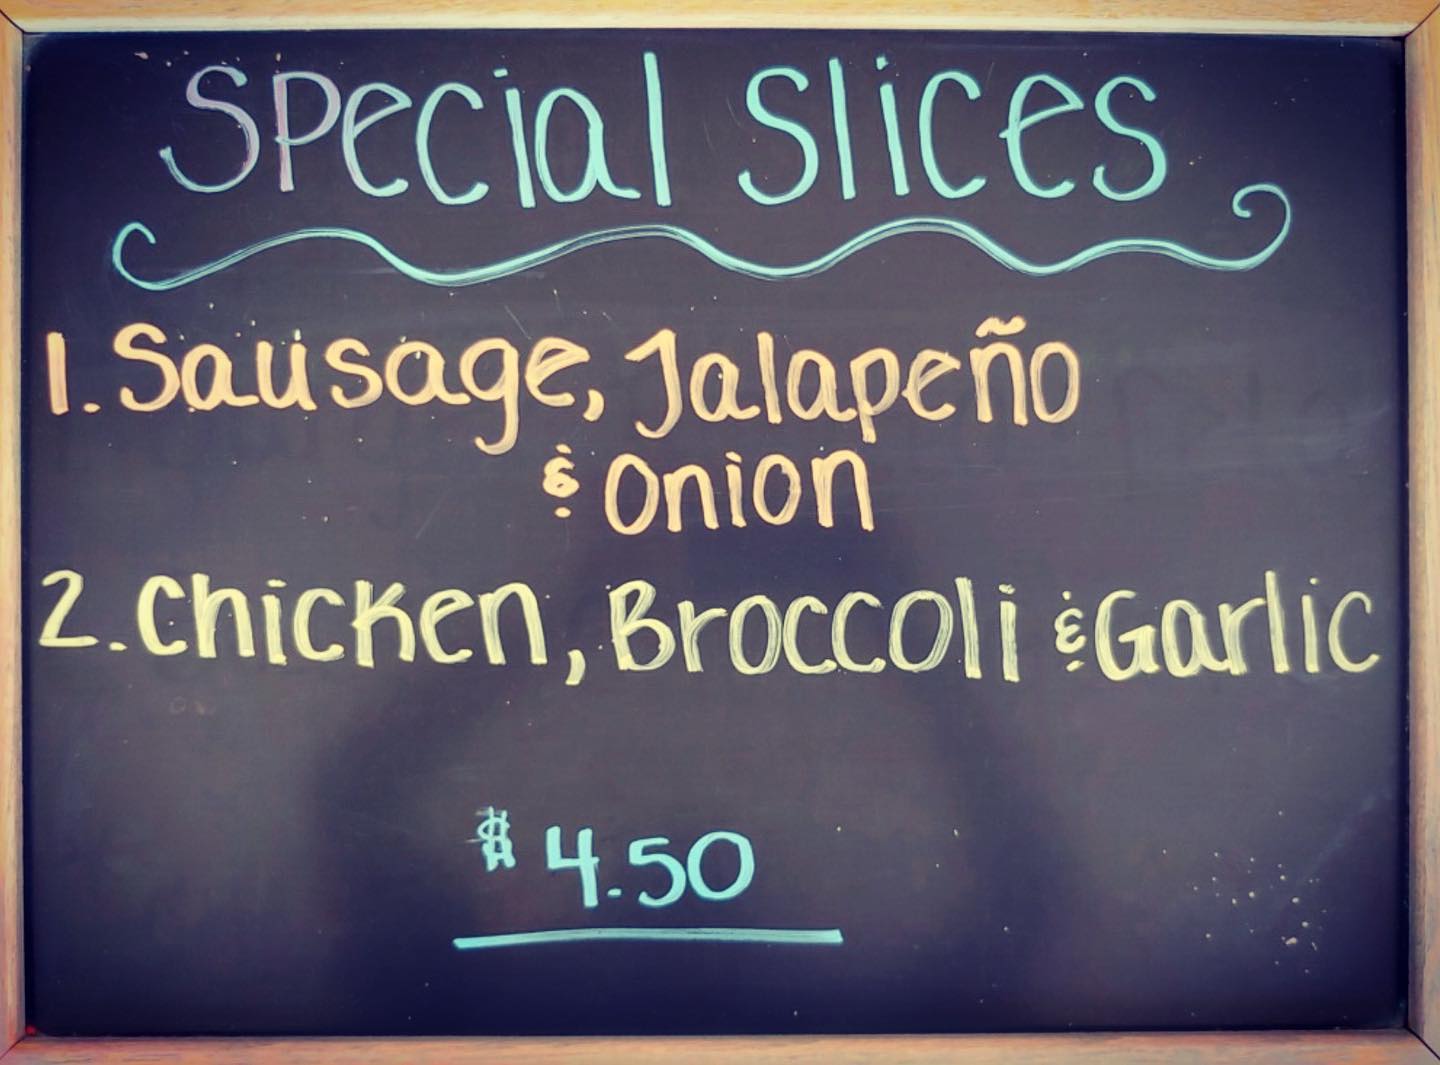 Special Slices
1. Sausage, Jalapeño
& Onion
2. Chicken, Broccoli & Garlic
$4.50